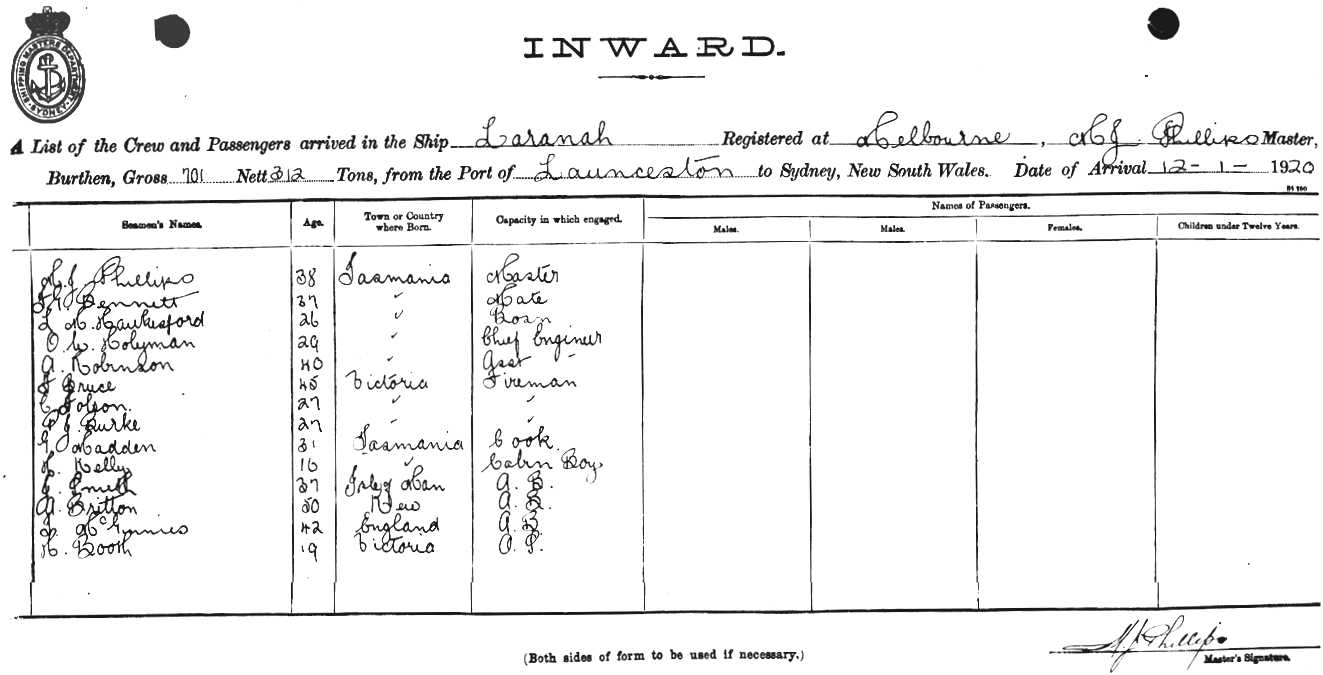 SHIPPING MASTERS DEPARTMENT SYDNEY
INWARD.
A List of the Crew and Passengers arrived in the Ship Laranah Registered at Melbourne, H J Phillips Master,
Burthen, Gross 701 Nett 312 Tons, from the Port of Launceston to Sydney, New South Wales. Date of Arrival 12-1-1920
Seamen's Names. Age. Town or Country where Born. Capacity in which engaged. Names of Passengers.
Males. Males. Females. Children under Twelve Years.
H.J. Phillips 38 Tasmania Master
Bennett 37 " Mate
L H. Hawkesford 26 " Bosn
O. W. Holyman 29 " Chief Engineer
A. Robinson 40 " Asst "
Bruce 45 Victoria Fireman
C. Tolson. 27 " "
P J. Burke 27 " "
G Madden 31 Tasmania Cook
H. Kelly 16 " Cabin Boy
J. Smith 37 Isle of Man A. B.
A. Britton 50 Kew A. B.
McGinnies 42 England A. B
H. Booth 19 Victoria O. S.
H J Phillips
Master's Signature.
(Both sides of form to be used if necessary.)